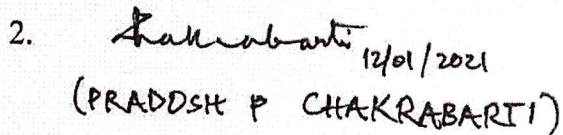 2. Chakrabarti 12/01/2021
(PRADOSH P CHAKRABARTI)